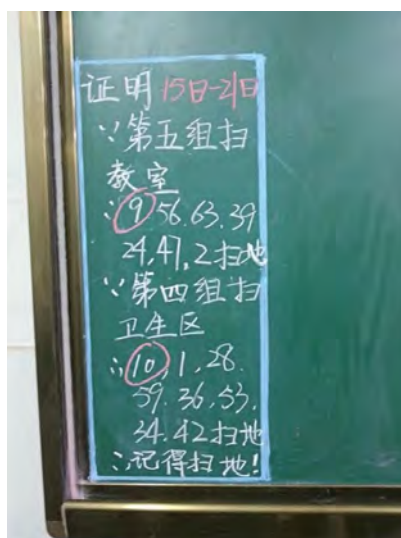 证明 15日-21日
∵第五组扫
教室
∴9,56.63.39
24,47,2扫地
∵第四组扫
卫生区
∴10,1,28.
59.36.53.
34.42扫地
∴记得扫地!